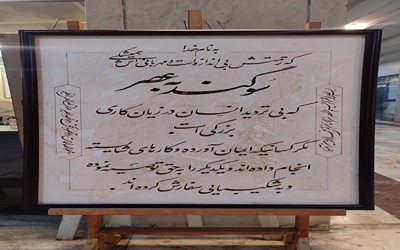 به نام خدا
که رحمتش بی اندازه است و مهربانی اش همیشگی
سوگند به عصر
که بی تردید انسان در زیان کاری
بزرگی است
مگر کسانیکه ایمان آورده و کارهای شایسته
انجام داده اند و یکدیگر را به حق توصیه نموده
و به شکیبایی سفارش کرده اند